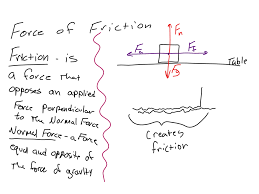 Force of Friction
Friction - is
a force that
opposes an applied
Force perpendicular
to the Normal Force
Normal Force - a Force
equal and opposite of
the force of gravity
Fn
Table
Fg
Creates
friction